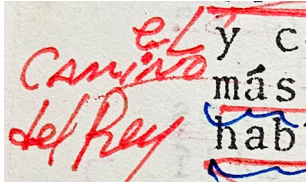 el
CAMINO
del Rey
y c
más
hab